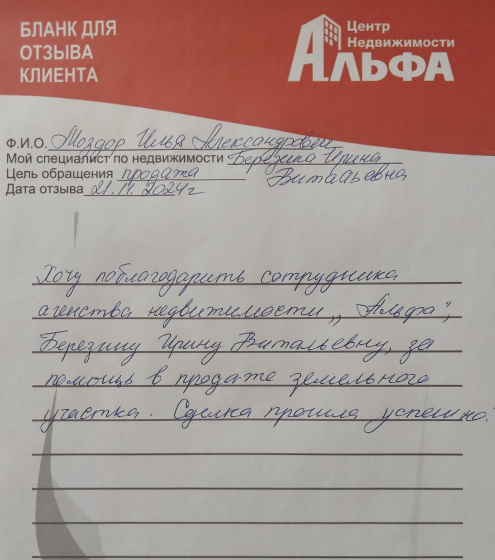 БЛАНК ДЛЯ
ОТЗЫВА
КЛИЕНТА
Центр
Недвижимости
АЛЬФА
Ф.И.О. Моздор Илья Александрович
Мой специалист по недвижимости Березина Ирина
Витальевна
Цель обращения продажа
Дата отзыва 21.11.2024г
Хочу поблагодарить сотрудника
агенства недвижимости „Альфа",
Березину Ирину Витальевну, за
помощь в продаже земельного
участка. Сделка прошла успешно.